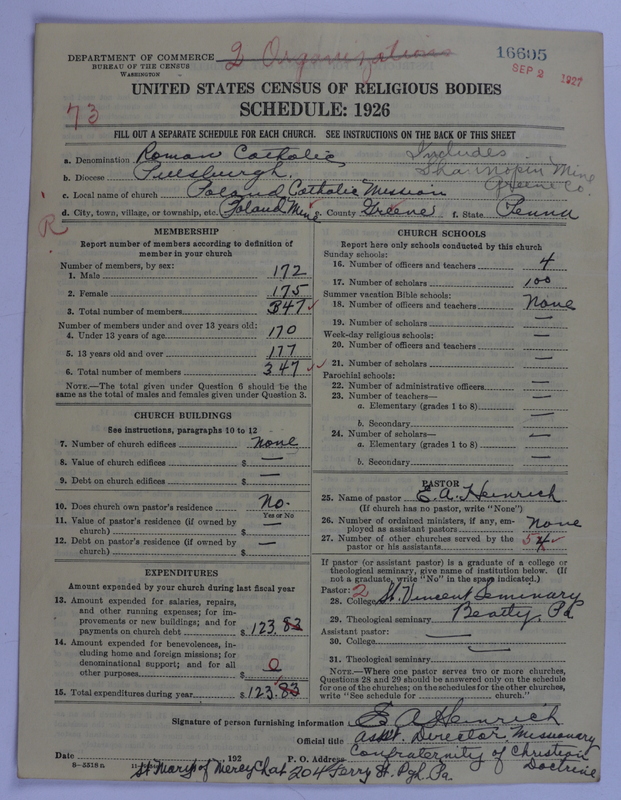 DEPARTMENT OF COMMERCE 2 Organizations 16605
BUREAU OF THE CENSUS
WASHINGTON
SEP 2 1927
UNITED STATES CENSUS OF RELIGIOUS BODIES
73 SCHEDULE: 1926
FILL OUT A SEPARATE SCHEDULE FOR EACH CHURCH. SEE INSTRUCTIONS ON THE BACK OF THIS SHEET
a. Denomination Roman Catholic
Includes
Shannopin Mine
Greene Co.
b. Diocese Pittsburgh.
c. Local name of church Poland Catholic Mission
d. City, town, village, or township, etc. Poland Mine e. County Greene f. State Penna
R
MEMBERSHIP
Report number of members according to definition of
member in your church
Number of members, by sex:
1. Male 172
2. Female 175
3. Total number of members 347
Number of members under and over 13 years old:
4. Under 13 years of age 170
5. 13 years old and over 177
6. Total number of members 347
NOTE.—The total given under Question 6 should be
same as the total of males and females given under Question 3.
CHURCH BUILDINGS
See instructions, paragraphs 10 to 12
7. Number of church edifices none
8. Value of church edifices $ —
9. Debt on church edifices $ —
10. Does church own pastor's residence No.
Yes or No
11. Value of pastor's residence (if owned by
church) $ —
12. Debt on pastor's residence (if owned by
church) $ —
EXPENDITURES
Amount expended by your church during last fiscal year
13. Amount expended for salaries, repairs,
and other running expenses; for im-
provements or new buildings; and for
payments on church debt $ 123.83
14. Amount expended for benevolences, in-
cluding home and foreign missions; for
denominational support; and for all
other purposes $ 0
15. Total expenditures during year $ 123.83
CHURCH SCHOOLS
Report here only schools conducted by this church
Sunday schools:
16. Number of officers and teachers 4
17. Number of scholars 100
Summer vacation Bible schools:
18. Number of officers and teachers None
19. Number of scholars —
Week-day religious schools:
20. Number of officers and teachers —
21. Number of scholars —
Parochial schools:
22. Number of administrative officers —
23. Number of teachers—
a. Elementary (grades 1 to 8) —
b. Secondary —
24. Number of scholars—
a. Elementary (grades 1 to 8) —
b. Secondary —
PASTOR
25. Name of pastor E. A. Heinrich
(If church has no pastor, write "None")
26. Number of ordained ministers, if any, em-
ployed as assistant pastors none
27. Number of other churches served by the
pastor or his assistants 5 4
If pastor (or assistant pastor) is a graduate of a college or
theological seminary, give name of institution below. (If
not a graduate, write "No" in the space indicated.)
Pastor: 2
28. College St. Vincent Seminary
29. Theological seminary Beatty, Pa
Assistant pastor:
30. College —
31. Theological seminary —
NOTE.—Where one pastor serves two or more churches,
Questions 28 and 29 should be answered only on the schedule
for one of the churches; on the schedules for the other churches,
write "See schedule for church."
Signature of person furnishing information E A Heinrich
Official title Asst. Director, Missionary
Confraternity of Christian
Doctrine
Date 192 P. O. Address
8—5518 a
St Mary of Mercy Chat 204 Ferry St. Pgh. Pa.